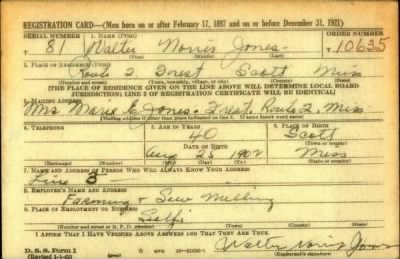 REGISTRATION CARD—(Men born on or after February 17, 1897 and on or before December 31, 1921)
SERIAL NUMBER 1. NAME (Print) ORDER NUMBER
T 81 Walter Norris Jones T 10635
(First) (Middle) (Last)
2. PLACE OF RESIDENCE (Print)
Route 2 Forest Scott Miss
(Number and street) (Town, township, village, or city) (County) (State)
[THE PLACE OF RESIDENCE GIVEN ON THE LINE ABOVE WILL DETERMINE LOCAL BOARD
JURISDICTION; LINE 2 OF REGISTRATION CERTIFICATE WILL BE IDENTICAL]
3. MAILING ADDRESS
Mrs Marie E Jones. Forest, Route 2, Miss.
[Mailing address if other than place indicated on line 2. If same insert word same]
4. TELEPHONE 5. AGE IN YEARS 6. PLACE OF BIRTH
40 Scott
DATE OF BIRTH (Town or county)
Aug 25 1902 Miss
(Exchange) (Number) (Mo.) (Day) (Yr.) (State or country)
7. NAME AND ADDRESS OF PERSON WHO WILL ALWAYS KNOW YOUR ADDRESS
Line 3
8. EMPLOYER'S NAME AND ADDRESS
Farming & Saw Milling
9. PLACE OF EMPLOYMENT OR BUSINESS
Self
(Number and street or R. F. D. number) (Town) (County) (State)
I AFFIRM THAT I HAVE VERIFIED ABOVE ANSWERS AND THAT THEY ARE TRUE.
D. S. S. Form 1
(Revised 1-1-42)
Walter Norris Jones
(Registrant's signature)